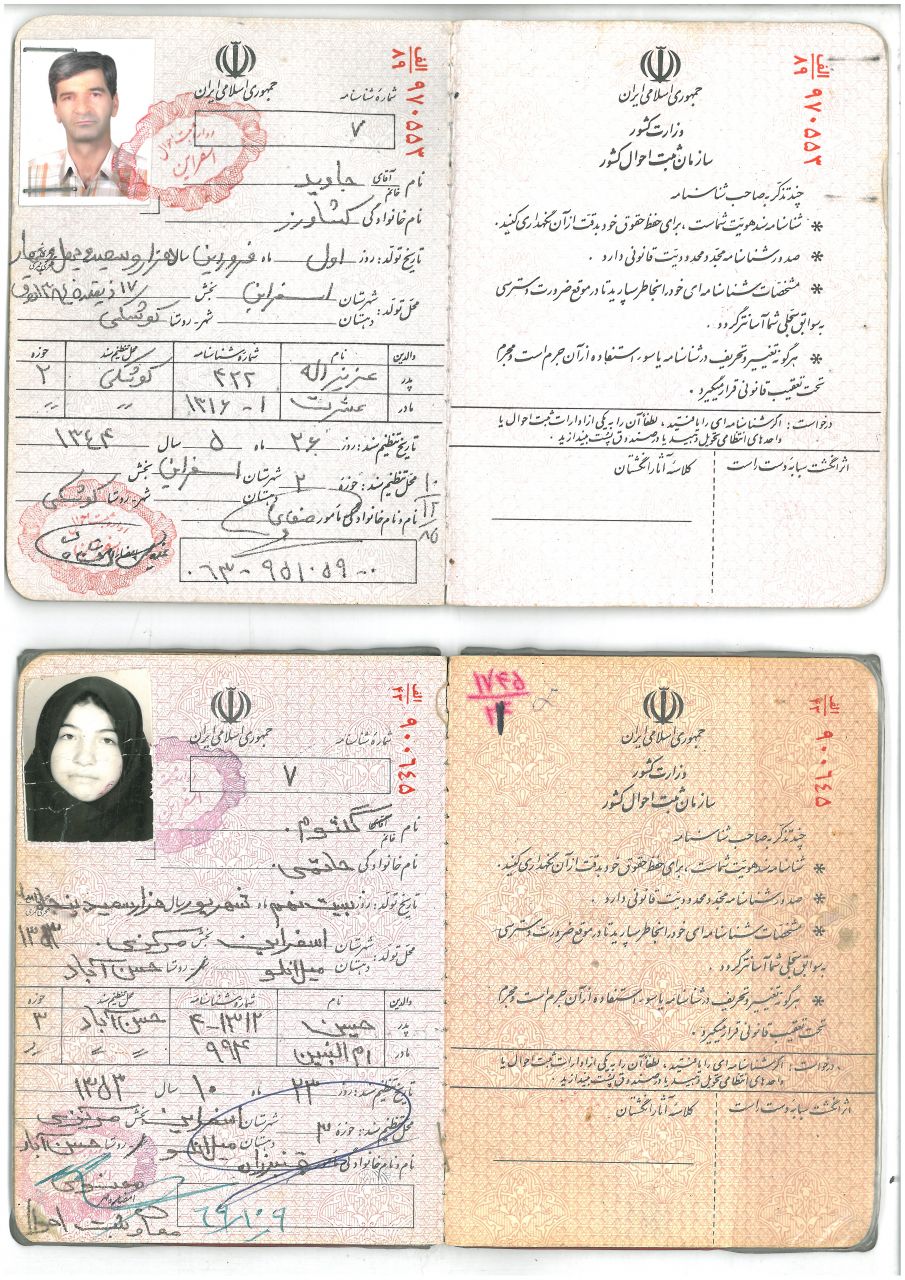 الف
۸۹ ۹۷۰۵۵۳
جمهوری اسلامی ایران
شمارهٔ شناسنامه
۷
اسفراین
نام آقای خانم جاوید
نام خانوادگی کشاورز
تاریخ تولد: روز اول ماه فروردین سال هزار و سیصد و چهل و چهار
۱۷ ذیقعده ۱۳۸۴
محل تولد: شهرستان اسفراین بخش
دهستان شهر-روستا کوشکی
والدین نام شمارهٔ شناسنامه محل تنظیم سند حوزه
پدر عزیزاله ۴۲۲ کوشکی ۲
مادر عشرت ۱-۱۳۱۶ " "
تاریخ تنظیم سند: روز ۲۶ ماه ۵ سال ۱۳۴۴
محل تنظیم سند: حوزهٔ ۲ شهرستان اسفراین بخش
دهستان شهر-روستا کوشکی
نام و نام خانوادگی مأمور صفایی
۰۶۳-۹۵۱۰۵۹-۰۰
الف
۸۹ ۹۷۰۵۵۳
جمهوری اسلامی ایران
وزارت کشور
سازمان ثبت احوال کشور
چند تذکر به صاحب شناسنامه
* شناسنامه سند هویت شماست، برای حفظ حقوق خود بدقت از آن نگهداری کنید.
* صدور شناسنامه مجدد محدودیت قانونی دارد.
* مشخصات شناسنامه ای خود را بخاطر بسپارید تا در موقع ضرورت دسترسی
به سوابق سجلی شما آسانتر گردد.
* هرگونه تغییر و تحریف در شناسنامه یا سوء استفاده از آن جرم است و مجرم
تحت تعقیب قانونی قرار میگیرد.
درخواست: اگر شناسنامه ای را یافتید، لطفاً آن را به یکی از ادارات ثبت احوال یا
واحدهای انتظامی تحویل دهید یا در صندوق پست بیندازید.
اثر انگشت سبابه دست راست
کلاسه آثار انگشتان
الف
۴۳ ۹۰۰۶۴۵
جمهوری اسلامی ایران
شمارهٔ شناسنامه
۷
نام آقای خانم کلثوم
نام خانوادگی حلمتی
تاریخ تولد: روز بیست نهم ماه شهریور سال هزار سیصد پنجاه
۱۳۵۳
محل تولد: شهرستان اسفراین بخش مرکزی
دهستان میلانلو روستا حسن آباد
والدین نام شمارهٔ شناسنامه محل تنظیم سند حوزه
پدر حسن ۴-۱۳۱۲ حسن آباد ۳
مادر ام البنین ۹۹۴ " " "
تاریخ تنظیم سند: روز ۲۳ ماه ۱۰ سال ۱۳۵۳
محل تنظیم سند: حوزهٔ ۳ شهرستان اسفراین بخش مرکزی
دهستان میلانلو روستا حسن آباد
نام و نام خانوادگی مأمور قنبرزاده
۶۹/۱۰/۹
۱۷۴۵
۱۴
الف
۴۳ ۹۰۰۶۴۵
جمهوری اسلامی ایران
وزارت کشور
سازمان ثبت احوال کشور
چند تذکر به صاحب شناسنامه
* شناسنامه سند هویت شماست، برای حفظ حقوق خود بدقت از آن نگهداری کنید.
* صدور شناسنامه مجدد محدودیت قانونی دارد.
* مشخصات شناسنامه ای خود را بخاطر بسپارید تا در موقع ضرورت دسترسی
به سوابق سجلی شما آسانتر گردد
* هرگونه تغییر و تحریف در شناسنامه یا سوء استفاده از آن جرم است و مجرم
تحت تعقیب قانونی قرار میگیرد.
درخواست: اگر شناسنامه ای را یافتید، لطفاً آن را به یکی از ادارات ثبت احوال یا
واحدهای انتظامی تحویل دهید یا در صندوق پست بیندازید.
اثر انگشت سبابه دست راست
کلاسه آثار انگشتان